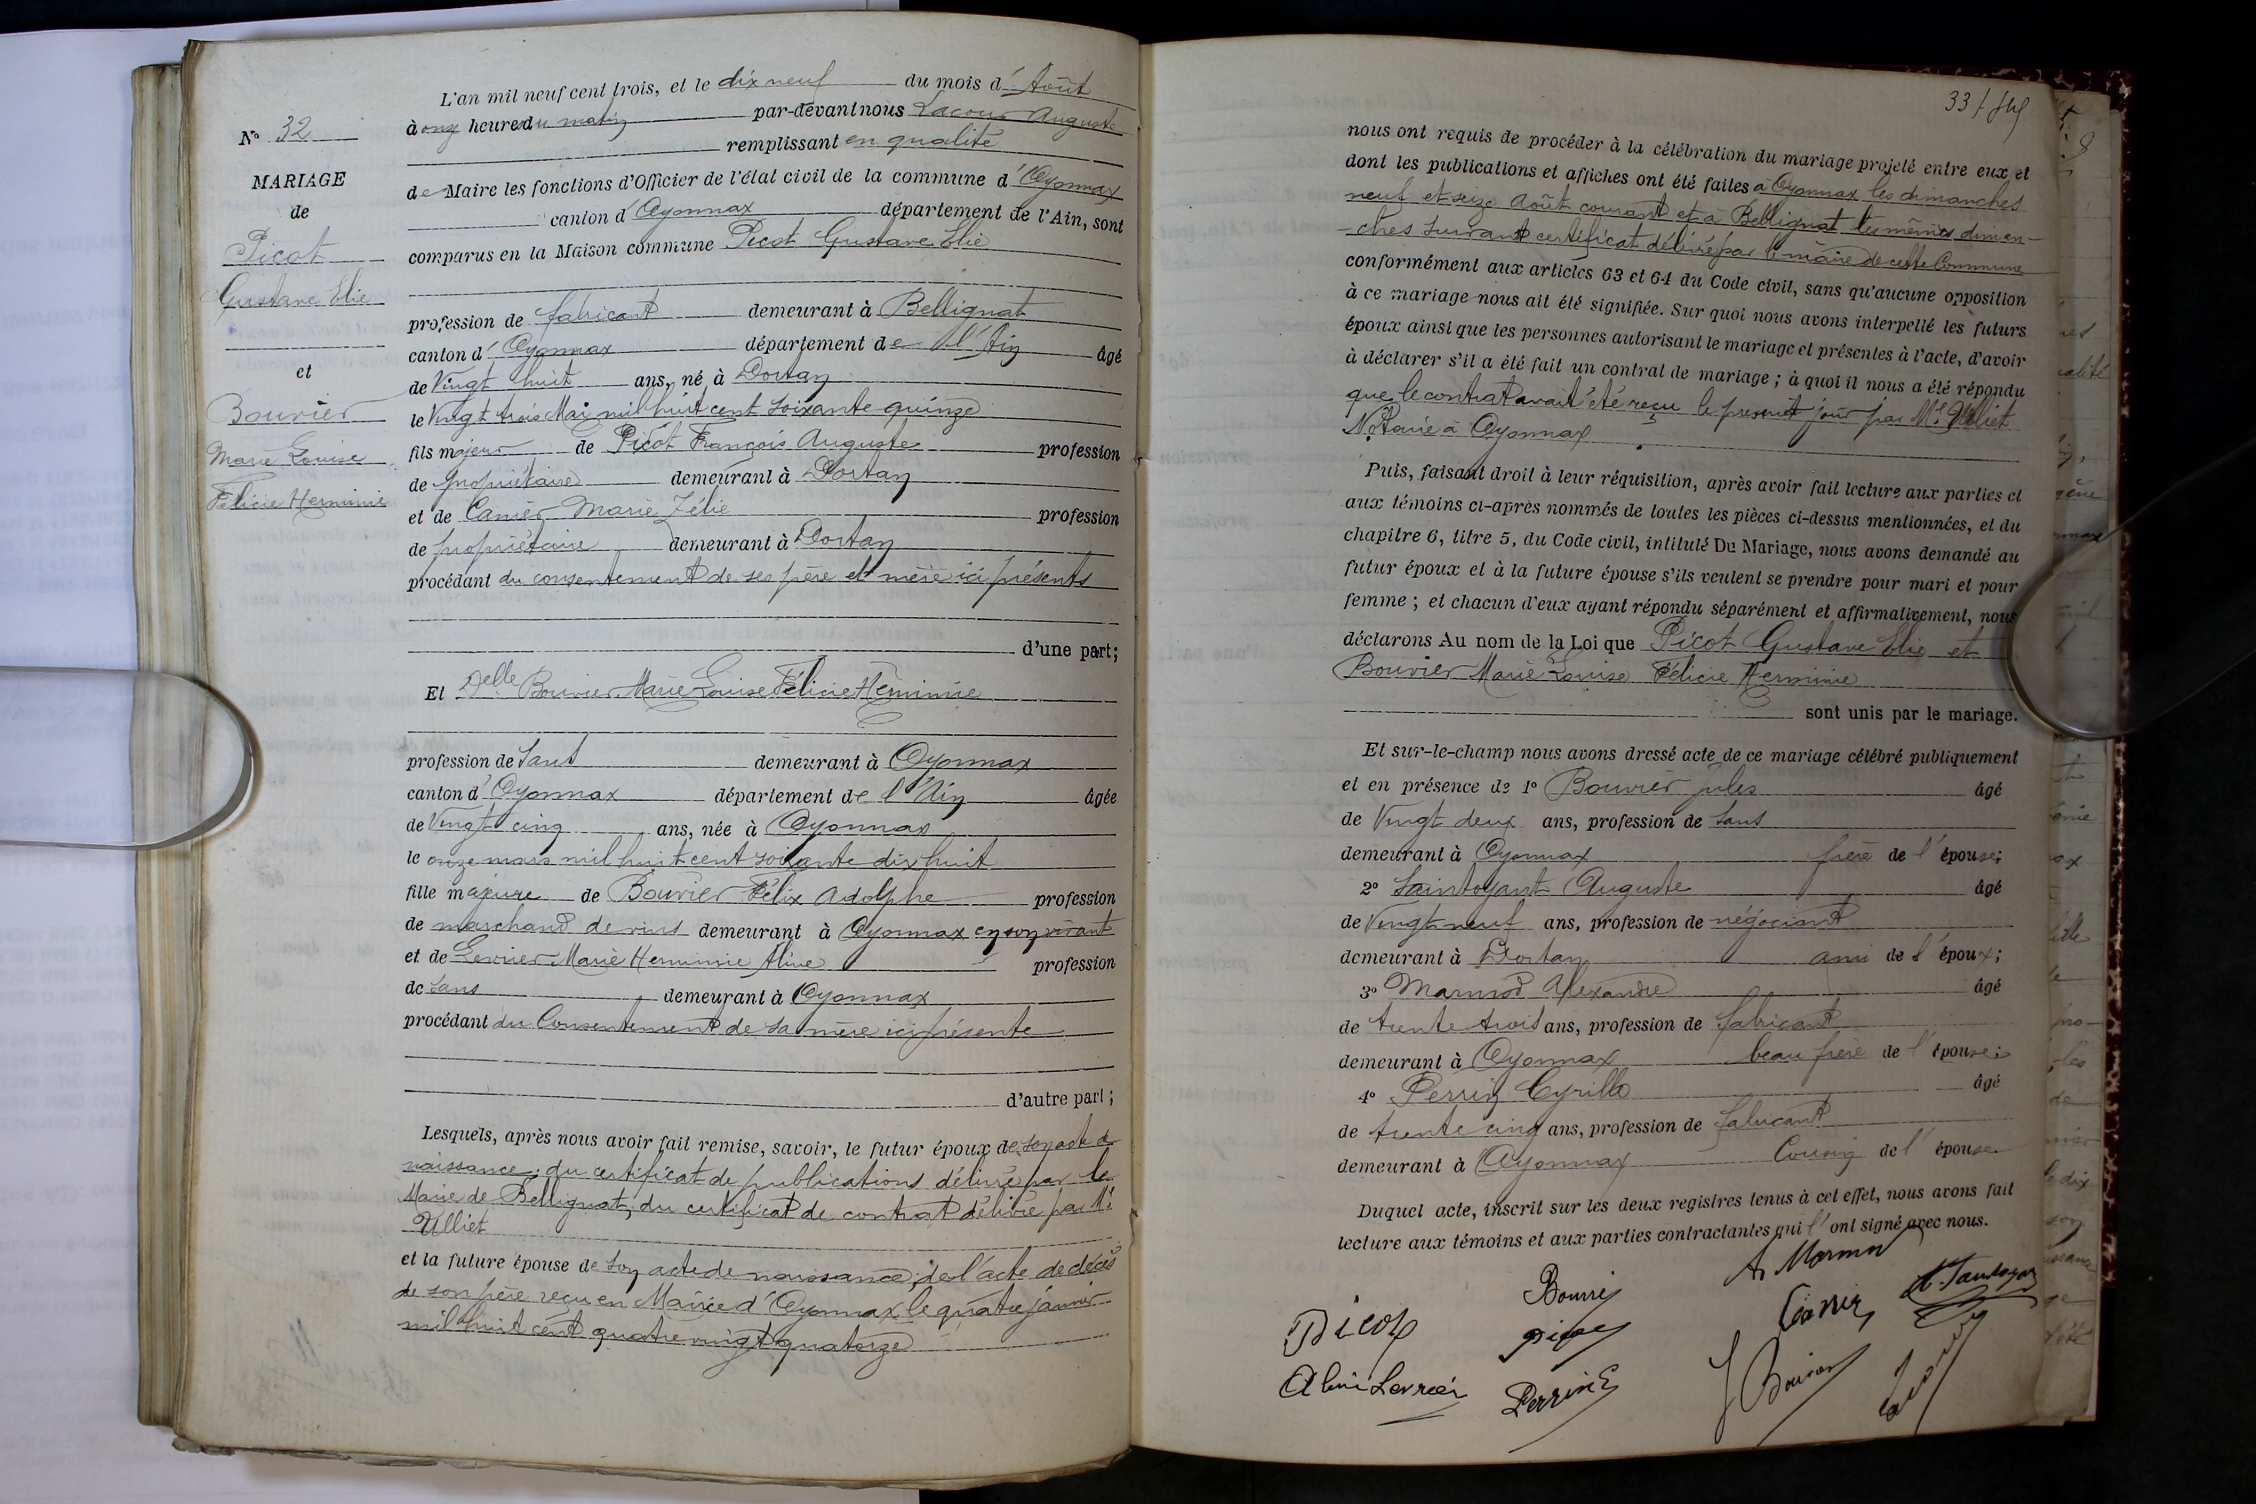 N° 32
MARIAGE
de
Picot
Gustave Elie
et
Bouvier
Marie Louise
Félicie Herminie
L'an mil neuf cent trois, et le dix neuf du mois d'Août
à onze heures du matin par-devant nous Lacour Auguste
remplissant en qualité
de Maire les fonctions d'Officier de l'état civil de la commune d'Oyonnax
canton d'Oyonnax département de l'Ain, sont
comparus en la Maison commune Picot Gustave Elie
profession de fabricant demeurant à Bellignat
canton d'Oyonnax département de l'Ain âgé
de Vingt huit ans, né à Dortan
le Vingt trois Mai mil huit cent soixante quinze
fils majeur de Picot François Auguste profession
de propriétaire demeurant à Dortan
et de Canier Marie Zélie profession
de propriétaire demeurant à Dortan
procédant du consentement de ses père et mère ici présents
d'une part;
Et Delle Bouvier Marie Louise Félicie Herminie
profession de Sans demeurant à Oyonnax
canton d'Oyonnax département de l'Ain âgée
de Vingt cinq ans, née à Oyonnax
le onze mars mil huit cent soixante dix huit
fille majeure de Bouvier Félix Adolphe profession
de marchand de vins demeurant à Oyonnax en son vivant
et de Levrier Marie Herminie Aline profession
de Sans demeurant à Oyonnax
procédant du Consentement de sa mère ici présente
d'autre part;
Lesquels, après nous avoir fait remise, savoir, le futur époux de son acte de
naissance; du certificat de publications délivré par le
Maire de Bellignat, du certificat de contrat délivré par Me
Ulliet
et la future épouse de son acte de naissance; de l'acte de décès
de son père reçu en Mairie d'Oyonnax le quatre janvier
mil huit cent quatre vingt quatorze
33
nous ont requis de procéder à la célébration du mariage projeté entre eux et
dont les publications et affiches ont été faites à Oyonnax les dimanches
neuf et seize Août courant et à Bellignat les mêmes diman-
-ches suivant certificat délivré par le maire de cette Commune
conformément aux articles 63 et 64 du Code civil, sans qu'aucune opposition
à ce mariage nous ait été signifiée. Sur quoi nous avons interpellé les futurs
époux ainsi que les personnes autorisant le mariage et présentes à l'acte, d'avoir
à déclarer s'il a été fait un contrat de mariage; à quoi il nous a été répondu
que le contrat avait été reçu le présent jour par Me Ulliet
Notaire à Oyonnax
Puis, faisant droit à leur réquisition, après avoir fait lecture aux parties et
aux témoins ci-après nommés de toutes les pièces ci-dessus mentionnées, et du
chapitre 6, titre 5, du Code civil, intitulé Du Mariage, nous avons demandé au
futur époux et à la future épouse s'ils veulent se prendre pour mari et pour
femme; et chacun d'eux ayant répondu séparément et affirmativement, nous
déclarons Au nom de la Loi que Picot Gustave Elie et
Bouvier Marie Louise Félicie Herminie
sont unis par le mariage.
Et sur-le-champ nous avons dressé acte de ce mariage célébré publiquement
et en présence de 1° Bouvier Jules âgé
de Vingt deux ans, profession de Sans
demeurant à Oyonnax frère de l'épouse;
2° Saintoyant Auguste âgé
de Vingt neuf ans, profession de négociant
demeurant à Dortan ami de l'époux;
3° Marmod Alexandre âgé
de trente trois ans, profession de fabricant
demeurant à Oyonnax beau frère de l'épouse;
4° Perrin Cyrille âgé
de trente cinq ans, profession de fabricant
demeurant à Oyonnax Cousin de l'épouse
Duquel acte, inscrit sur les deux registres tenus à cet effet, nous avons fait
lecture aux témoins et aux parties contractantes qui l'ont signé avec nous.
A Marmod
Bouvier
Canier
A. Saintoyant
Picot
Picot
J Bouvier
Aline Levrier
Perrin C